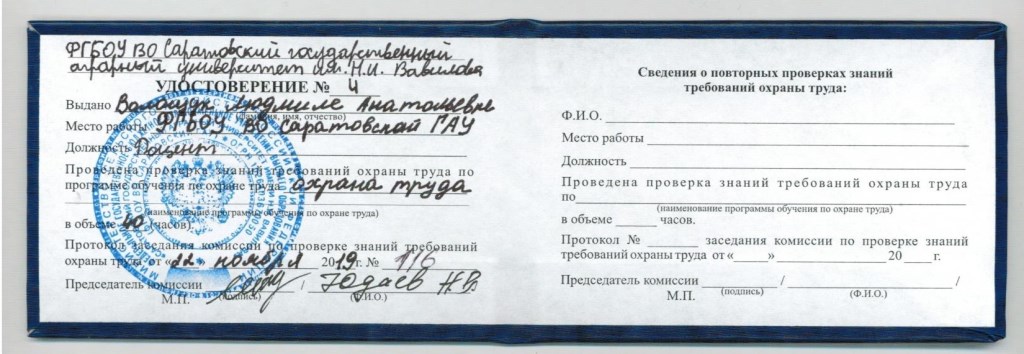 ФГБОУ ВО Саратовский государственный
аграрный университет им. Н.И. Вавилова
УДОСТОВЕРЕНИЕ № 4
Выдано Волощук Людмиле Анатольевне
(фамилия, имя, отчество)
Место работы ФГБОУ ВО Саратовский ГАУ
Должность Доцент
Проведена проверка знаний требований охраны труда по
программе обучения по охране труда охрана труда
(наименование программы обучения по охране труда)
в объеме 40 (часов).
Протокол заседания комиссии по проверке знаний требований
охраны труда от «22» ноября 2019 г. № 1/6
Председатель комиссии / Юдаев Н.В.
М.П. (подпись) (Ф.И.О.)
Сведения о повторных проверках знаний
требований охраны труда:
Ф.И.О.
Место работы
Должность
Проведена проверка знаний требований охраны труда
по
(наименование программы обучения по охране труда)
в объеме часов.
Протокол № заседания комиссии по проверке знаний
требований охраны труда от « » 20 г.
Председатель комиссии / /
М.П. (подпись) (Ф.И.О.)